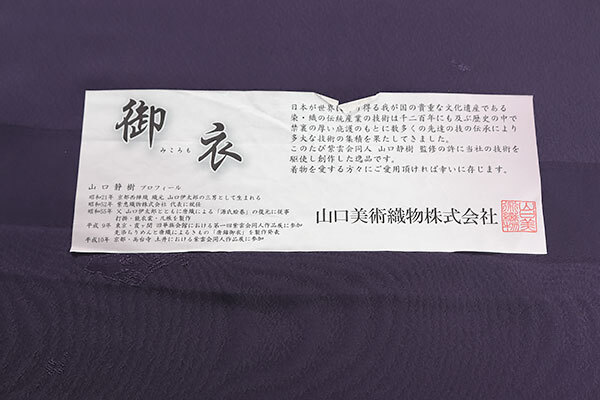 御衣
みころも
日本が世界に 得る我が国の貴重な文化遺産である
染・織の伝統産業の技術は千二百年にも及ぶ歴史の中で
禁裏の厚い庇護のもとに数多くの先達の技の伝承により
多大な技術の集積を果たしてきました。
このたび紫雲会同人 山口静樹 監修の許に当社の技術を
駆使し創作した逸品です。
着物を愛する方々にご愛用頂ければ幸いに存じます。
山口静樹 プロフィール
昭和21年 京都西陣織 織元 山口伊太郎の三男として生まれる
昭和52年 紫恵織物株式会社 代表に就任
昭和55年 父 山口伊太郎とともに唐織による「源氏絵巻」の復元に従事
打掛・能衣裳・几帳を製作
平成9年 東京・霞ヶ関 旧華族会館における第一回紫雲会同人作品展に参加
先染ちりめんと唐織によるきもの「唐錦御衣」を製作発表
平成10年 京都・高台寺 土井における紫雲会同人作品展に参加
山口美術織物株式会社
山口美術織物